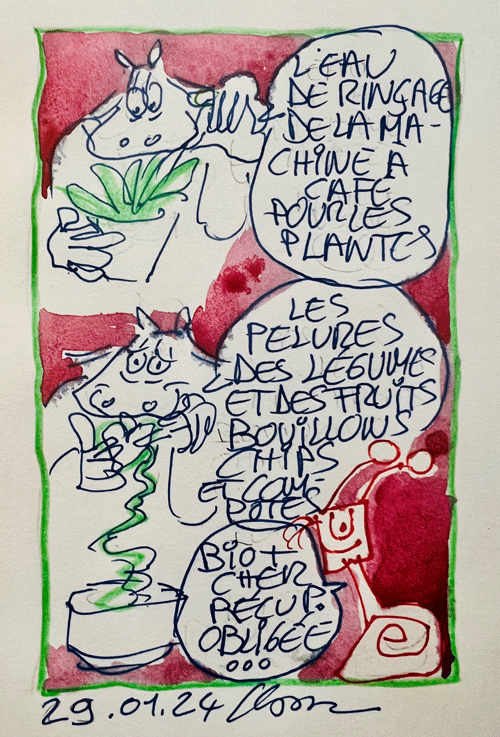 L'EAU
DE RINÇAGE
DE LA MA-
CHINE A
CAFE
POUR LES
PLANTES
LES
PELURES
DES LÉGUMES
ET DES FRUITS
BOUILLONS
CHIPS
ET COM-
POTES
BIO +
CHER
RÉCUP.
OBLIGÉE
...
e
29.01.24